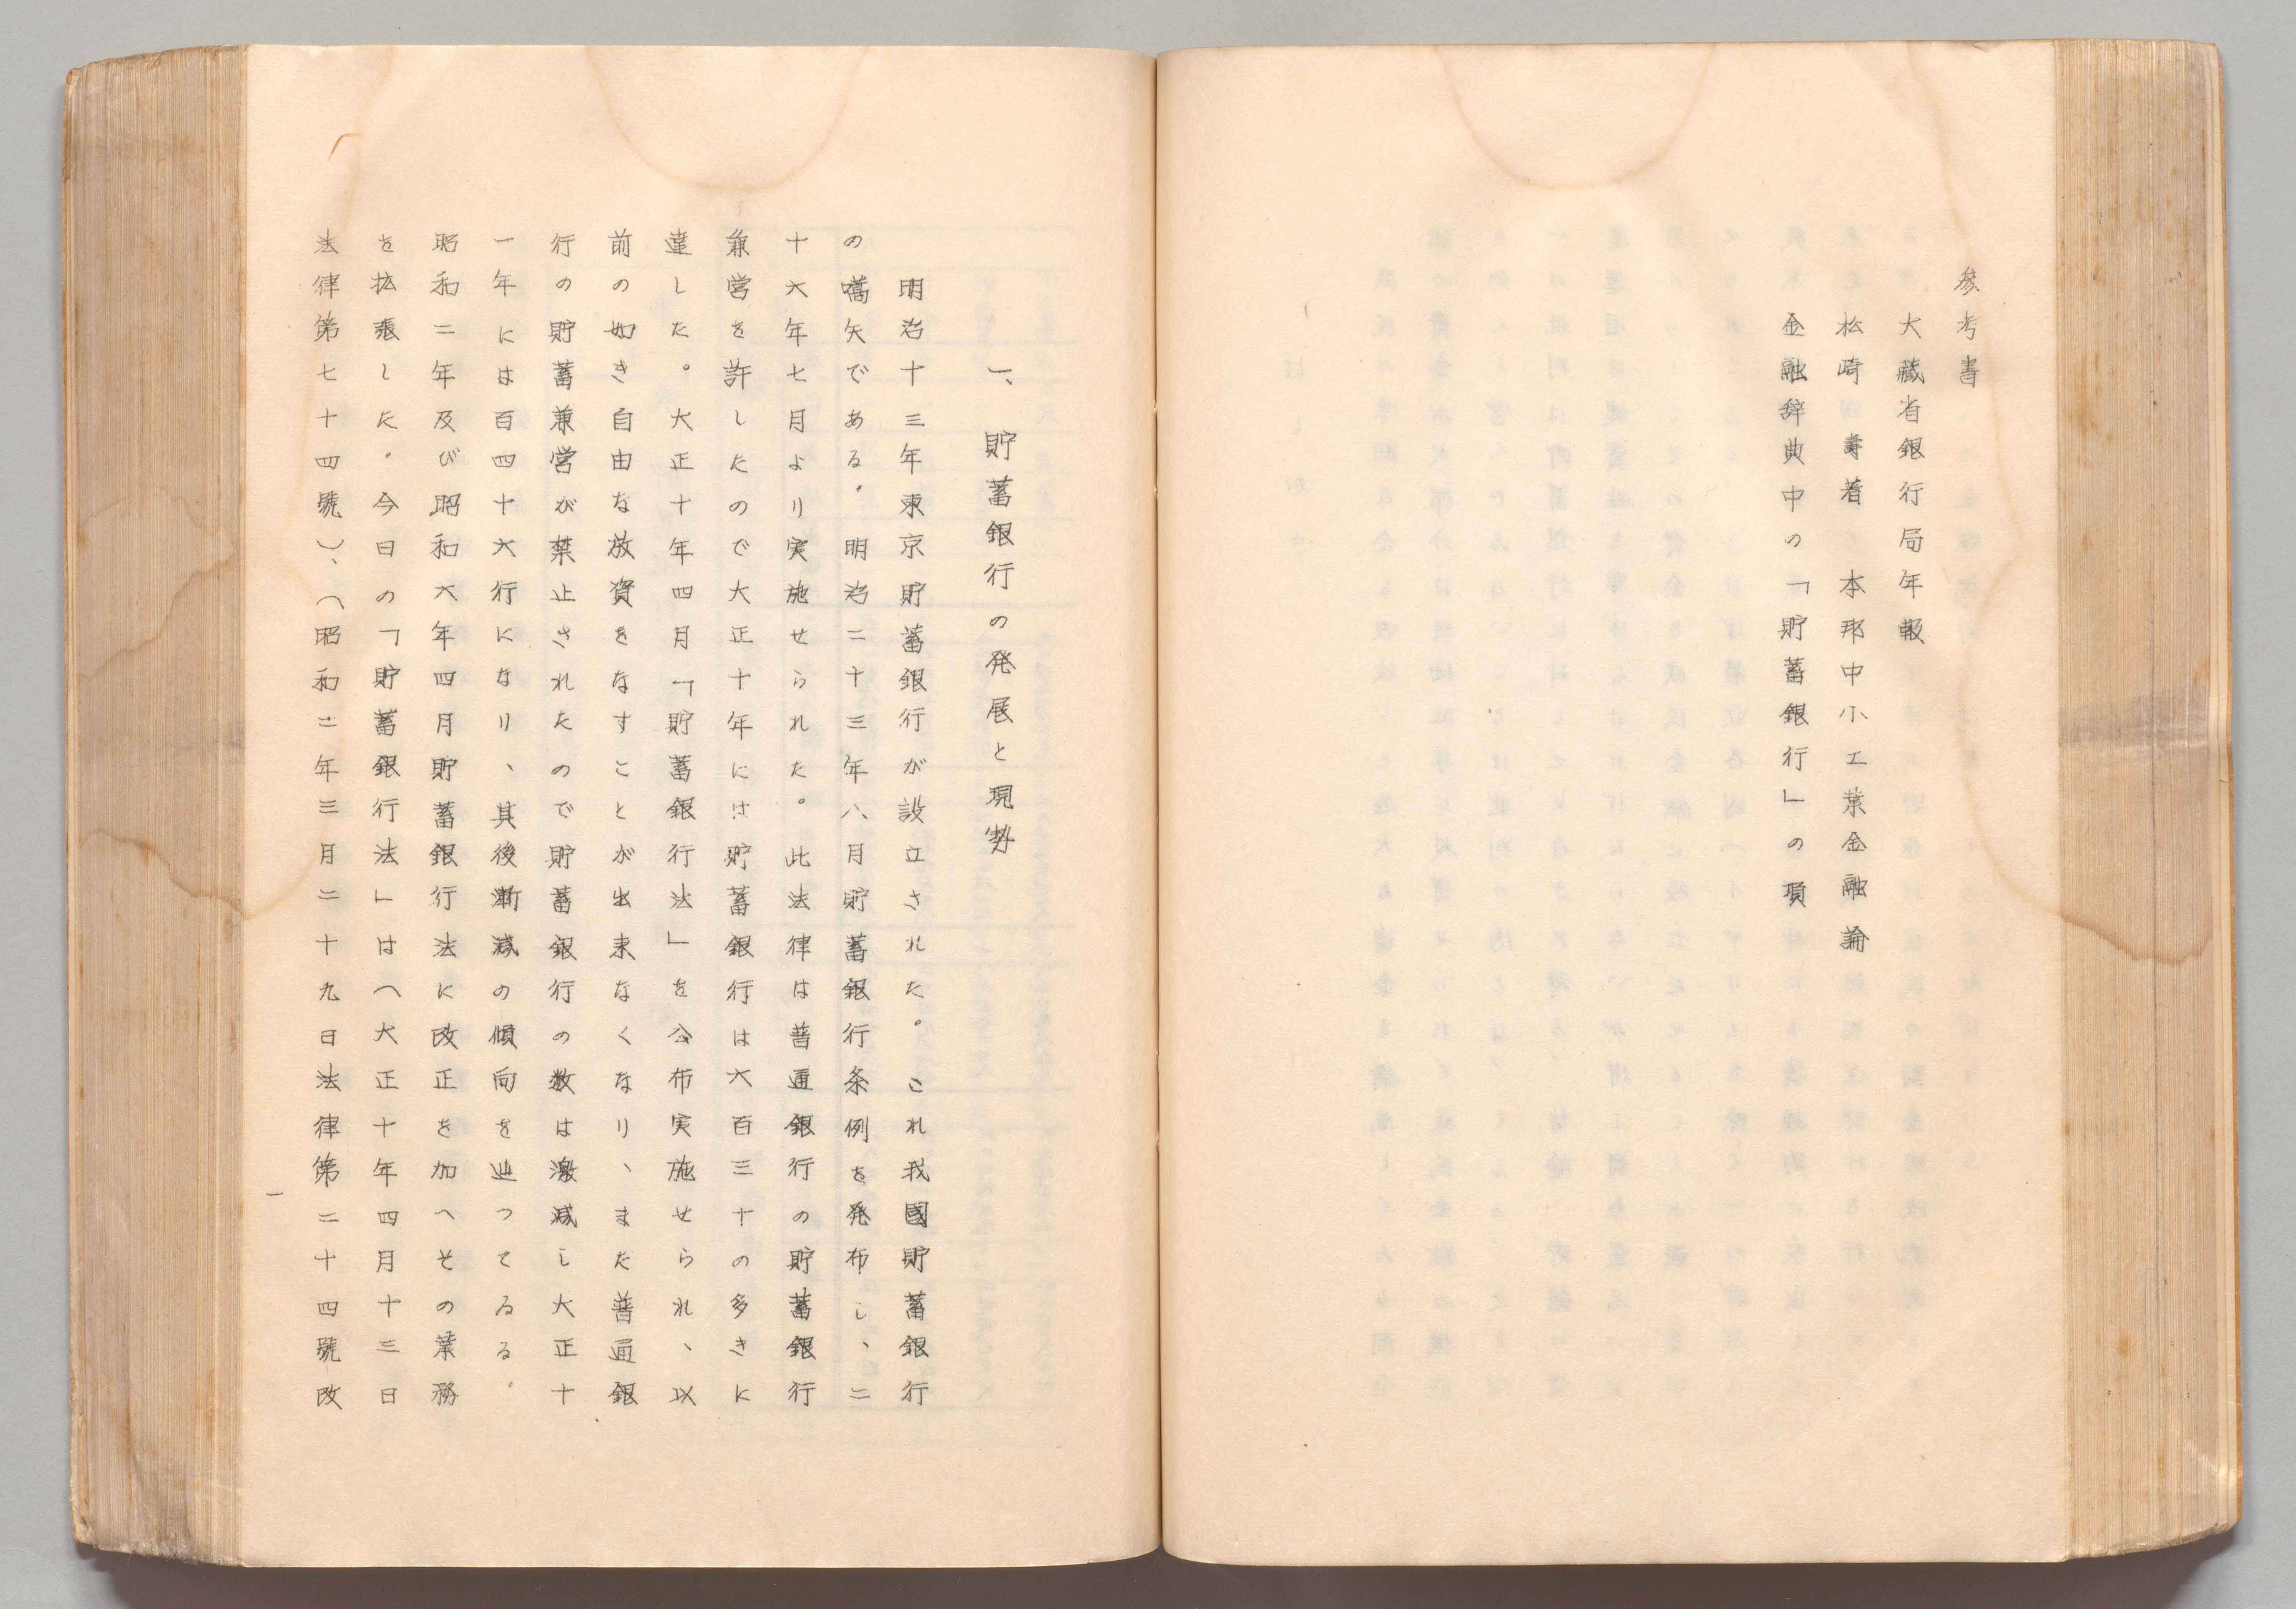 参考書
大蔵省銀行局年報
松崎壽著 本邦中小工業金融論
金融辞典中の「貯蓄銀行」の項
一、貯蓄銀行の発展と現勢
明治十三年東京貯蓄銀行が設立された。これ我國貯蓄銀行
の嚆矢である。明治二十三年八月貯蓄銀行条例を発布し、二
十六年七月より実施せられた。此法律は普通銀行の貯蓄銀行
兼営を許したので大正十年には貯蓄銀行は六百三十の多きに
達した。大正十年四月「貯蓄銀行法」を公布実施せられ、以
前の如き自由な放資をなすことが出来なくなり、また普通銀
行の貯蓄兼営が禁止されたので貯蓄銀行の数は激減し大正十
一年には百四十六行になり、其後漸減の傾向を辿つてゐる。
昭和二年及び昭和六年四月貯蓄銀行法に改正を加へその業務
を拡張した。今日の「貯蓄銀行法」は(大正十年四月十三日
法律第七十四號)、(昭和二年三月二十九日法律第二十四號改
一